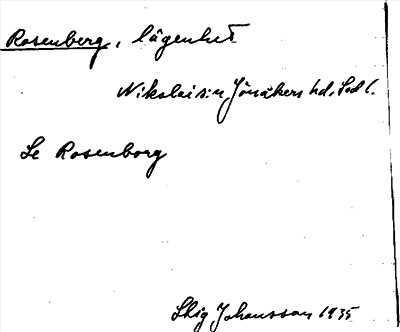 Rosenberg, lägenhet
Nikolai s:n Jönåkers hd. Södl.
Se Rosenborg
Stig Johansson 1935